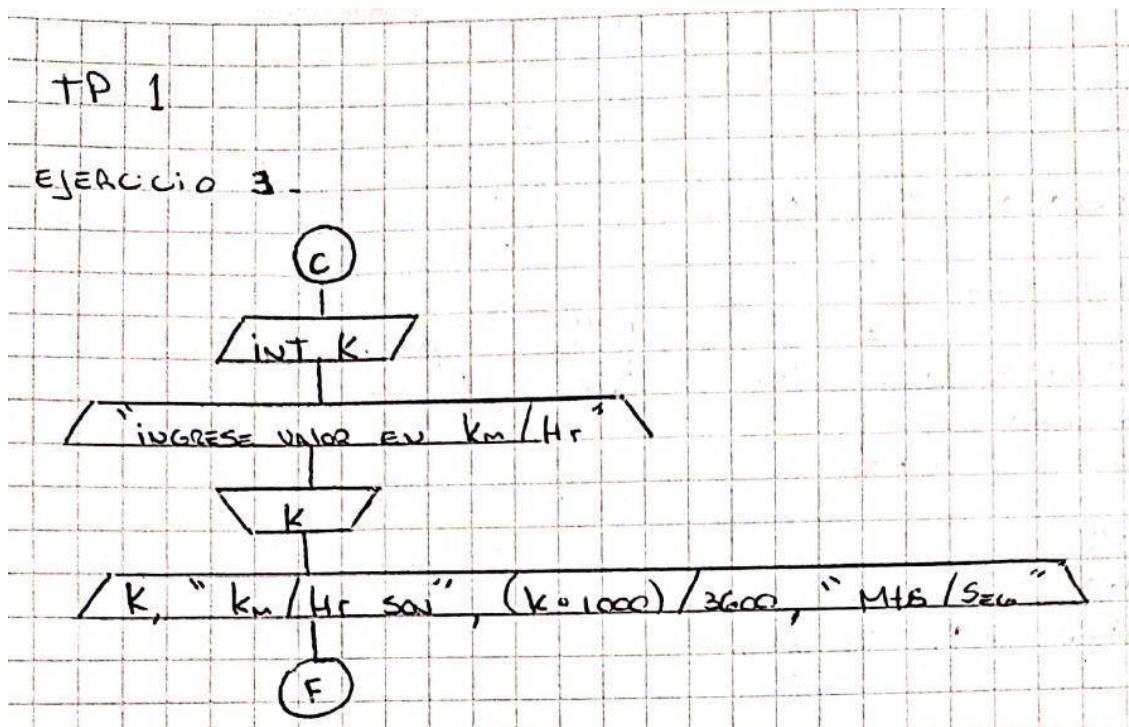 TP 1
EJERCICIO 3-
C
INT K.
"INGRESE VALOR EN Km/Hr"
K
K, "Km/Hr SON", (K·1000)/3600, "Mts/SEG"
F